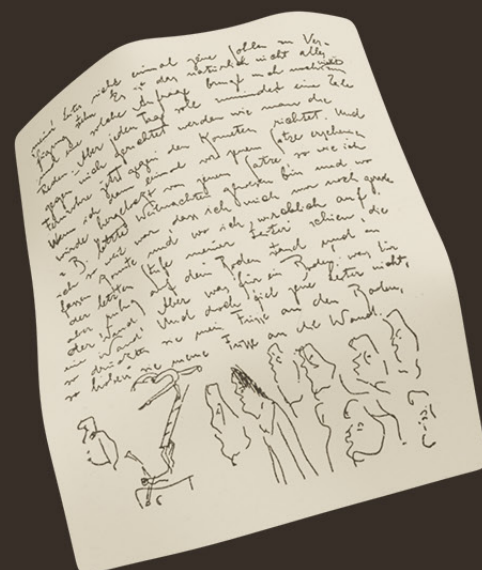 meine Leiter nicht einmal jene Sohlen zur Ver-
fügung stehn. Es ist das natürlich nicht alles
und eine solche Anfrage bringt mich noch nicht zum
Reden. Aber jeden Tag soll zumindest eine Zeile
gegen mich gerichtet werden wie man die
Fernrohre jetzt gegen den Kometen richtet. Und
wenn ich dann einmal vor jenem Satze erscheinen
würde hergelockt von jenem Satze so wie ich
z. B. letzte Weihnachten gewesen bin und wo
ich so weit war dass ich mich nur noch gerade
fassen konnte und wo ich wirklich auf
der letzten Stufe meiner Leiter schien, die
aber ruhig auf dem Boden stand und an
der Wand. Aber was für ein Boden! was für
eine Wand! Und doch fiel jene Leiter nicht,
so drückten sie meine Füsse an den Boden,
so hoben sie meine Füsse an die Wand.